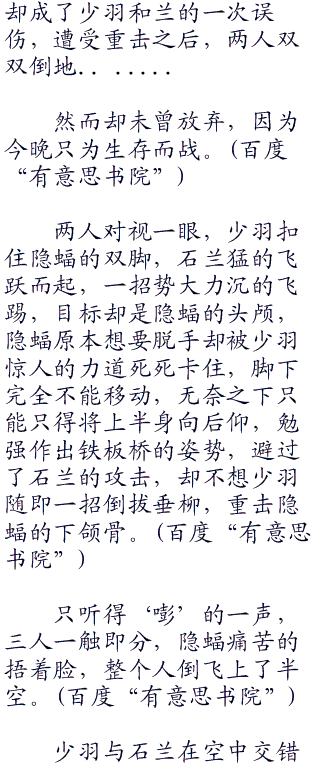 却成了少羽和兰的一次误
伤，遭受重击之后，两人双
双倒地．．．．．．．
然而却未曾放弃，因为
今晚只为生存而战。(百度
“有意思书院”)
两人对视一眼，少羽扣
住隐蝠的双脚，石兰猛的飞
跃而起，一招势大力沉的飞
踢，目标却是隐蝠的头颅，
隐蝠原本想要脱手却被少羽
惊人的力道死死卡住，脚下
完全不能移动，无奈之下只
能只得将上半身向后仰，勉
强作出铁板桥的姿势，避过
了石兰的攻击，却不想少羽
随即一招倒拔垂柳，重击隐
蝠的下颌骨。(百度“有意思
书院”)
只听得‘嘭’的一声，
三人一触即分，隐蝠痛苦的
捂着脸，整个人倒飞上了半
空。(百度“有意思书院”)
少羽与石兰在空中交错